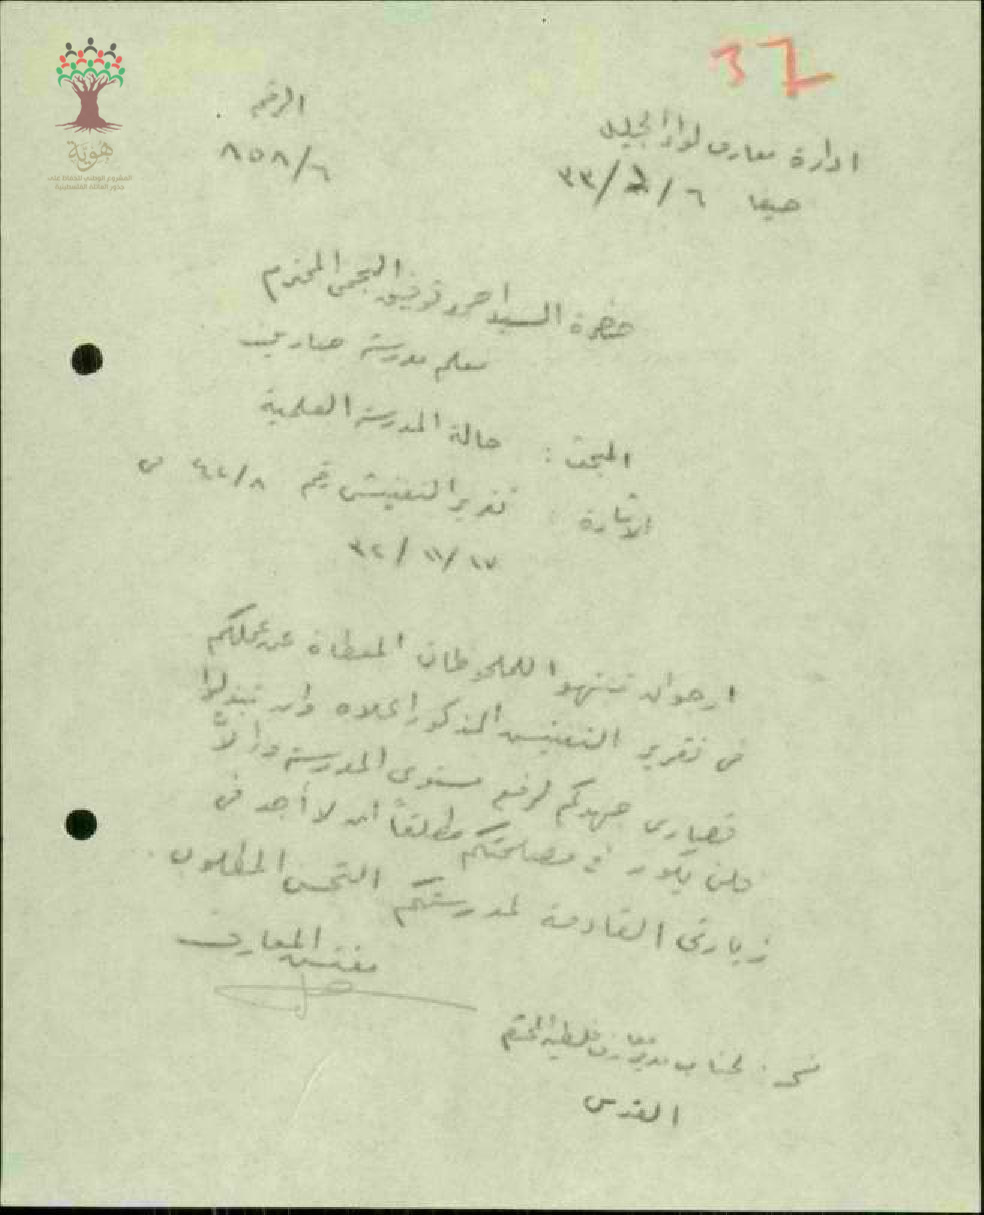 37
هوية
المشروع الوطني للحفاظ على
جذور العائلة الفلسطينية
الرقم
٨٥٨/٦
ادارة معارف لواء الجليل
حيفا ٦/ /٣٣
حضرة السيد احمد توفيق المحترم
معلم مدرسة
المبحث : حالة المدرسة العلمية
الاشارة : تقرير التفتيش رقم ٤٤/٨ في
١٧/١١/٣٢
ارجو ان تنتبهوا للملحوظات المعطاة عن عملكم
في تقرير التفتيش المذكور اعلاه وان تبذلوا
قصارى جهدكم لرفع مستوى المدرسة والاّ
فلن يكون في مصلحتكم مطلقاً ان لا أجد في
زيارتي القادمة لمدرستكم التحسن المطلوب .
مفتش المعارف
نسخة : لجناب مدير معارف فلسطين المحترم
القدس